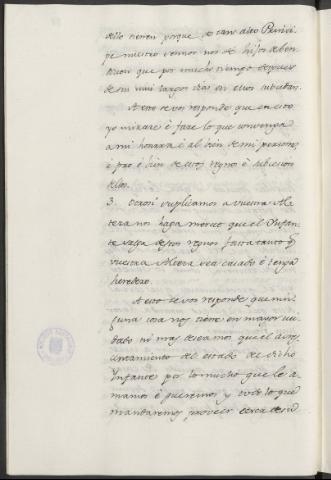 dello tienen porque de tan alto Princi-
pe nuestro veamos nos de hijos de ben-
dicion que por mucho tiempo despues
de mui largos dias en ellos subcedan.
A esto se vos responde que en esto
yo mirare è fare lo que convenga
a mi honra è al bien de mi persona
è pro è bien de estos regnos è subcesion
dellos.
3. Otrosi suplicamos a vuestra Al-
teza nos haga merced que el Infan-
te salga destos regnos fasta tanto q̃
vuestra Alteza sea casado è tenga
heredero.
A esto se vos responde que nin-
guna cosa nos tiene en mayor cui-
dado ni mas deseamos que el acres-
centamiento del estado del dicho
Infante por lo mucho que le a-
mamos è queremos y todo lo que
mandaremos proveer cerca de su